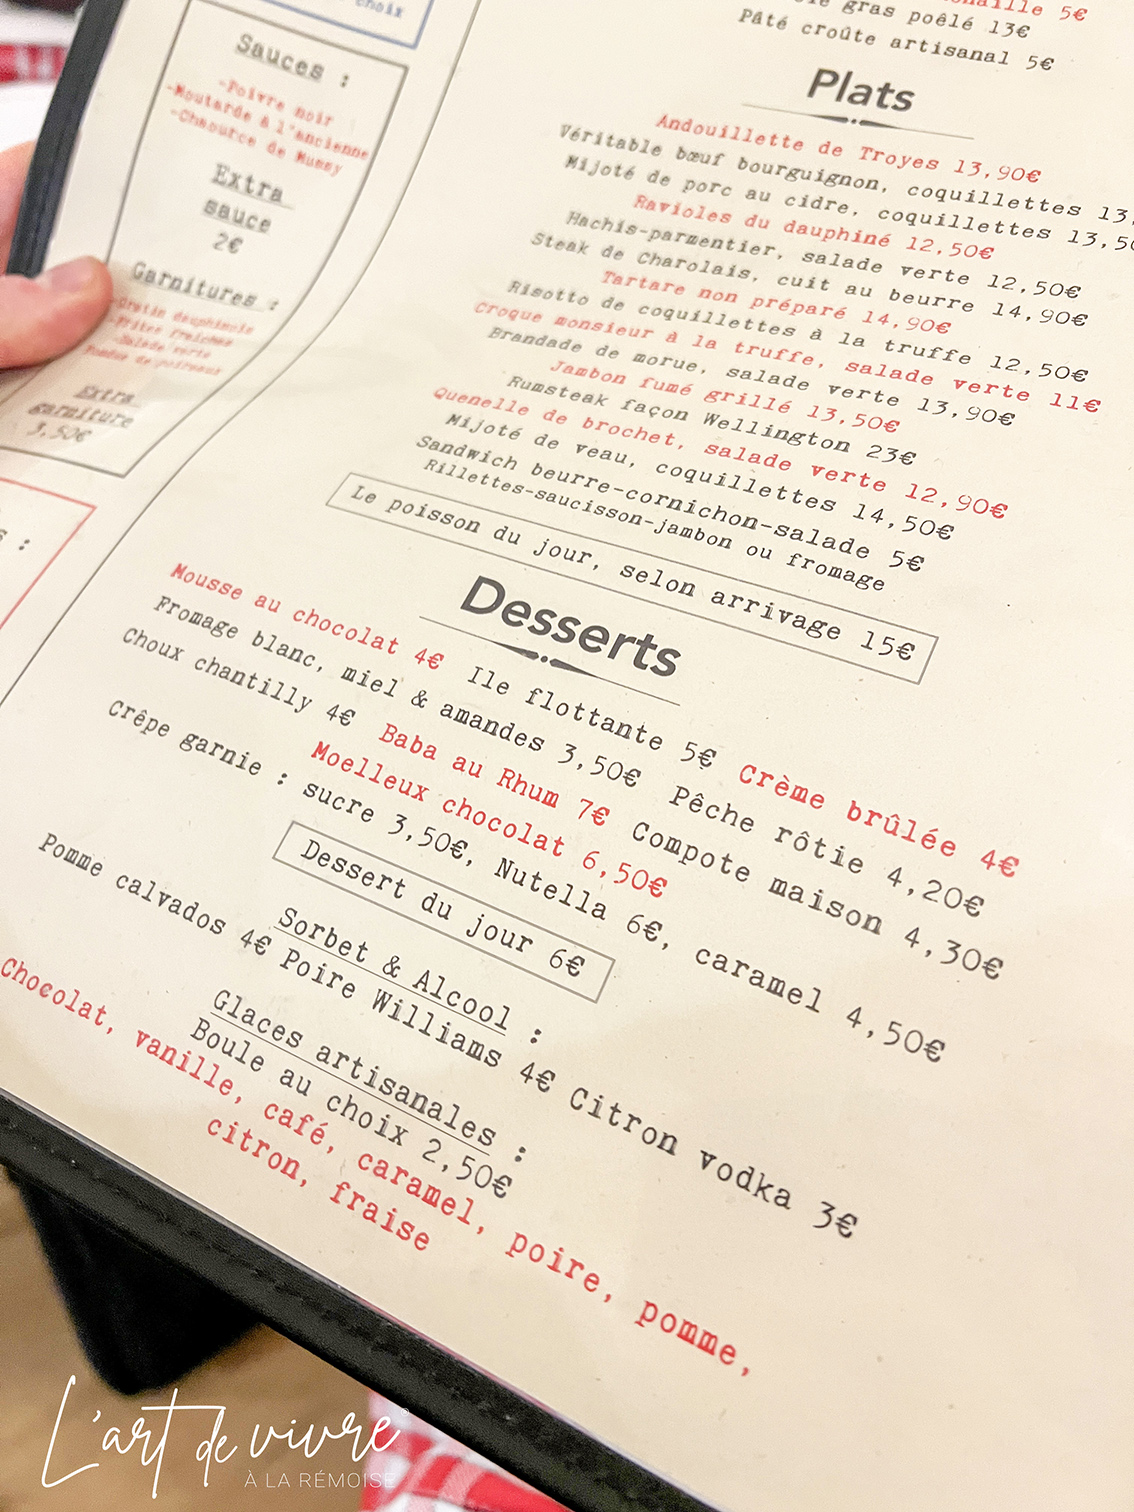 choix
Sauces :
-Poivre noir
-Moutarde à l'ancienne
-Chaource de Mussy
Extra
sauce
2€
Garnitures :
-Gratin dauphinois
-Frites fraîches
-Salade verte
Fondue de poireaux
Extra
garniture
3,50€
s :
5€
gras poêlé 13€
Pâté croûte artisanal 5€
Plats
Andouillette de Troyes 13,90€
Véritable bœuf bourguignon, coquillettes 13,
Mijoté de porc au cidre, coquillettes 13,50
Ravioles du dauphiné 12,50€
Hachis-parmentier, salade verte 12,50€
Steak de Charolais, cuit au beurre 14,90€
Tartare non préparé 14,90€
Risotto de coquillettes à la truffe 12,50€
Croque monsieur à la truffe, salade verte 11€
Brandade de morue, salade verte 13,90€
Jambon fumé grillé 13,50€
Rumsteak façon Wellington 23€
Quenelle de brochet, salade verte 12,90€
Mijoté de veau, coquillettes 14,50€
Sandwich beurre-cornichon-salade 5€
Rillettes-saucisson-jambon ou fromage
Le poisson du jour, selon arrivage 15€
Desserts
Mousse au chocolat 4€ Ile flottante 5€ Crème brûlée 4€
Fromage blanc, miel & amandes 3,50€ Pêche rôtie 4,20€
Choux chantilly 4€ Baba au Rhum 7€ Compote maison 4,30€
Moelleux chocolat 6,50€
Crêpe garnie : sucre 3,50€, Nutella 6€, caramel 4,50€
Dessert du jour 6€
Sorbet & Alcool :
Pomme calvados 4€ Poire Williams 4€ Citron vodka 3€
Glaces artisanales :
Boule au choix 2,50€
Chocolat, vanille, café, caramel, poire, pomme,
citron, fraise
L'art de vivre
À LA RÉMOISE